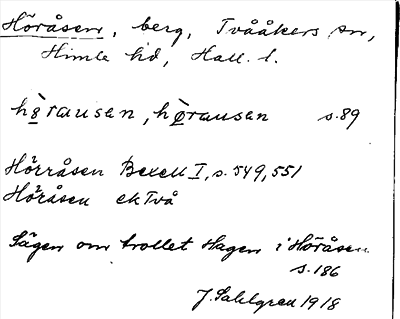 Höråsen, berg, Tvååkers sn,
Himle hd, Hall. l.
hö̀rausen, hø̀rausen s. 89
Hörråsen Bexell I, s. 549, 551
Höråsen ek Två
Sägen om trollet Hagen i Höråsen
s. 186
J. Sahlgren 1918